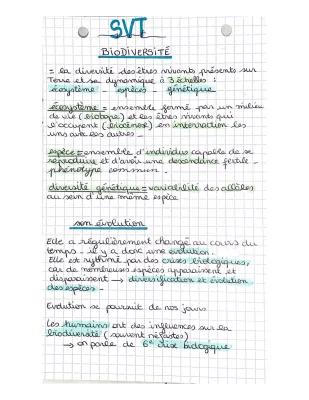 SVT
BIODIVERSITÉ
= la diversité des êtres vivants présents sur
Terre et sa dynamique à 3 échelles :
écosystème - espèces - génétique
écosystème = ensemble formé par un milieu
de vie (biotope) et les êtres vivants qui
l'occupent (biocénose) en interaction les
uns avec les autres.
espèce = ensemble d'individus capable de se
reproduire et d'avoir une descendance fertile -
phénotype commun.
diversité génétique = variabilité des allèles
au sein d'une même espèce
son évolution
Elle a régulièrement changé au cours du
temps : il y a donc une évolution.
Elle est rythmée par des crises biologiques,
car de nombreuses espèces apparaissent et
disparaissent → diversification et évolution
des espèces -
Evolution se poursuit de nos jours
Les humains ont des influences sur la
biodiversité (souvent néfastes)
→ on parle de 6e crise biologique